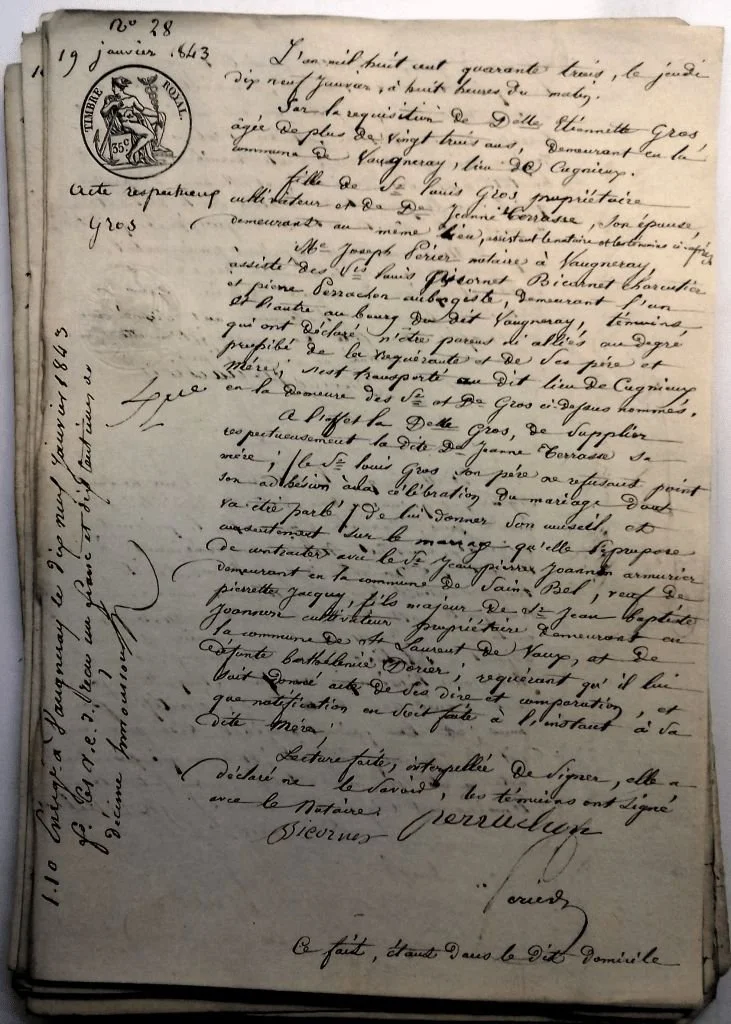 n° 28
19 janvier 1843
TIMBRE ROYAL.
35 c
acte respectueux
Gros
L'an mil huit cent quarante trois, le jeudi
dix neuf Janvier, à huit heures du matin.
Sur la requisition de Delle Etiennette Gros
âgée de plus de vingt trois ans, demeurant en la
commune de Vaugneray, lieu de Cugnieux.
fille de Sr Louis Gros propriétaire
cultivateur et de De Jeanne Terrasse, son épouse,
demeurant au même lieu, assistant le notaire et les témoins ci après
Me Joseph Perier notaire à Vaugneray
assisté des Srs Louis Bicornet charcutier
et pierre Perrachon aubergiste, demeurant l'un
et l'autre au bourg du dit Vaugneray, témoins,
qui ont déclaré n'être parens ni alliés au degré
prohibé de la requérante et de ses père et
mère; s'est transporté au dit lieu de Cugnieux
en la demeure des Sr et De Gros ci-dessus nommés.
A l'effet la Delle Gros, de supplier
respectueusement la dite De Jeanne Terrasse sa
mère; le Sr Louis Gros son père ne refusant point
son adhésion à la célébration du mariage dont
va être parlé de lui donner son conseil et
consentement sur le mariage qu'elle se propose
de contracter avec le Sr Jean pierre Joannon armurier
demeurant en la commune de Sain Bel, veuf de
pierrette Jacquy, fils majeur de Sr Jean Baptiste
Joannon cultivateur propriétaire demeurant en
la commune de St Laurent de Vaux, et de
défunte barthélemie Dorier; requérant qu'il lui
soit donné acte de ses dire et comparution, et
que notification en soit faite à l'instant à sa
dite mère.
Lecture faite, interpellée de signer, elle a
déclaré ne le savoir; les témoins ont signé
avec le Notaire.
Bicornet Perrachon
Perier
Ce fait, étant dans le dit domicile
1.10 Enrgé à Vaugneray le dix neuf Janvier 1843
reçu un franc et dix centimes de
décime